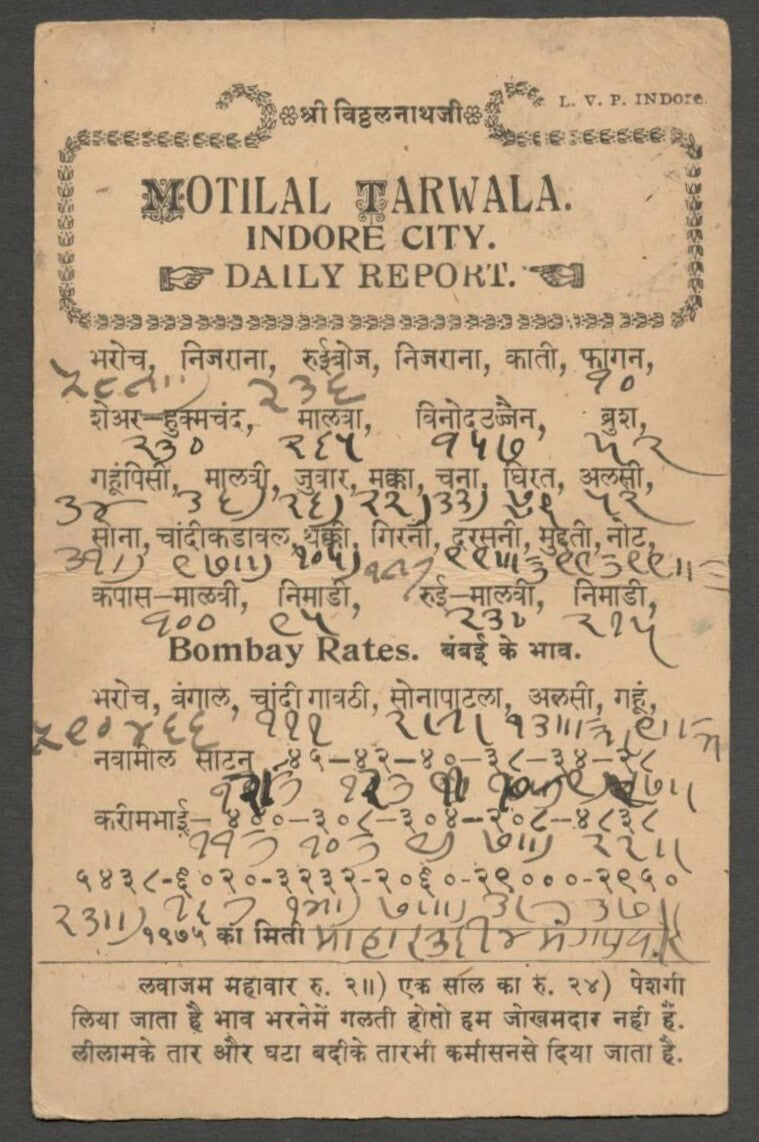 श्री विठ्ठलनाथजी
L. V. P. INDORE.
MOTILAL TARWALA.
INDORE CITY.
DAILY REPORT.
भरोच, निजराना, रुईबोज, निजराना, काती, फागन,
२३६ १०
शेअर—हुक्मचंद, मालवा, विनोदउज्जैन, ब्रुश,
२३० २६५ १५७ ५२
गहूंपिसी, मालवी, जुवार, मक्का, चना, घिरत, अलसी,
३४ ३६) २६) २२) ३३) ५१ ५२
सोना, चांदीकडावल, थक्की, गिरनी, दरसनी, मुद्दती, नोट,
३१॥) ९७॥) १०५)
कपास—मालवी, निमाडी, रुई—मालवी, निमाडी,
१०० ९५ २३० २१५
Bombay Rates. बंबई के भाव.
भरोच, बंगाल, चांदी गावठी, सोनापाटला, अलसी, गहूं,
५९० ४६६ १११
नवामील साटन ४५—४२—४०—३८—३४—२८
करीमभाई—४४०—३०८—३०४—२०८—४८३८
७॥) २२॥
५४३८-६०२०-३२३२-२०६०-२९०००-२९५०
२३॥) ७॥) ३७॥
१९७५ का मिती
लवाजम महावार रु. २॥) एक साल का रु. २४) पेशगी
लिया जाता है भाव भरनेमें गलती होतो हम जोखमदार नही हैं.
लीलामके तार और घटा बदीके तारभी कमीसनसे दिया जाता है.